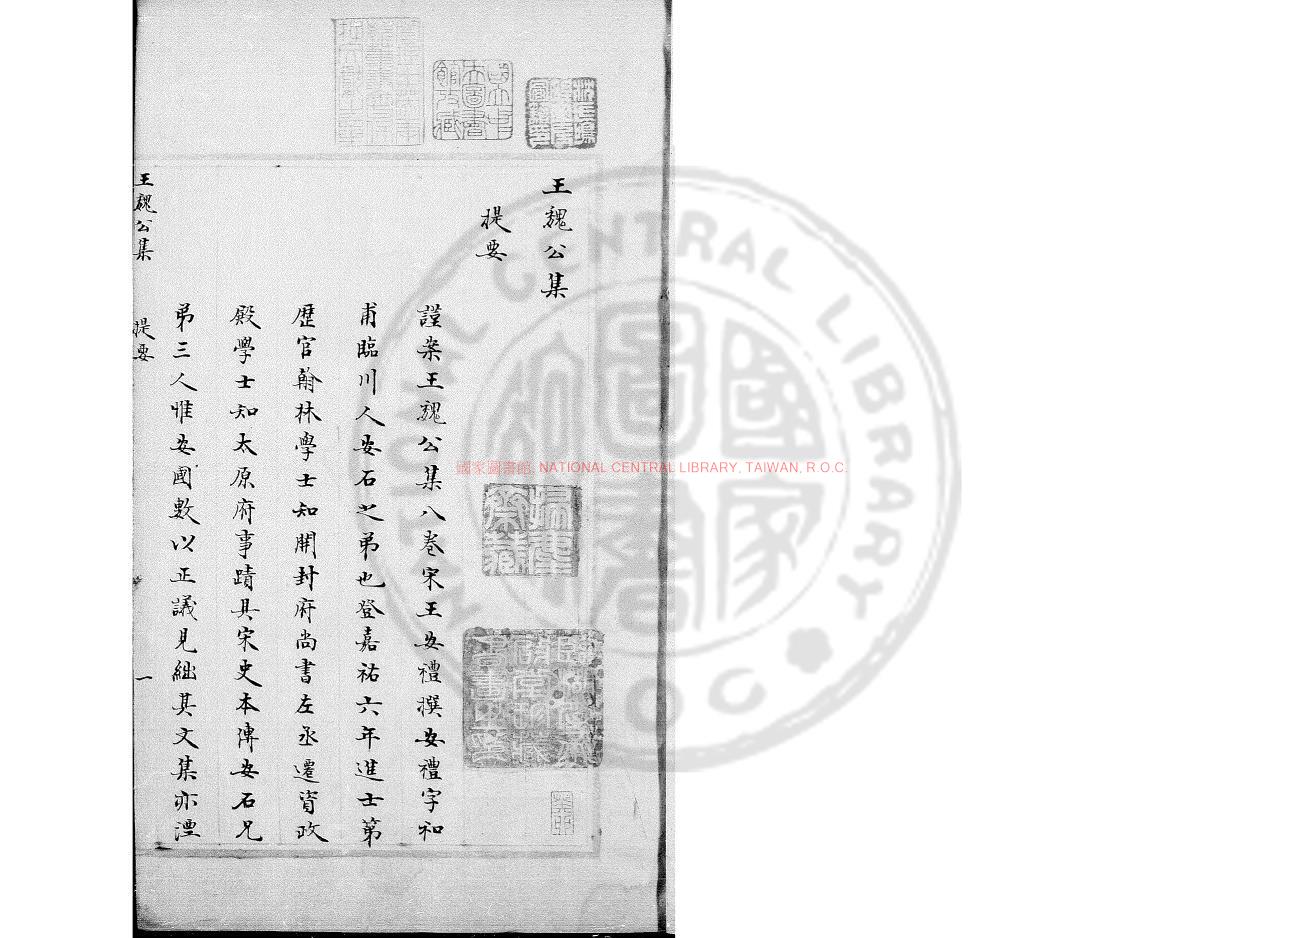 王魏公集
提要
謹案王魏公集八卷宋王安禮撰安禮字和
甫臨川人安石之弟也登嘉祐六年進士第
歷官翰林學士知開封府尚書左丞遷資政
殿學士知太原府事蹟具宋史本傳安石兄
弟三人惟安國數以正議見絀其文集亦湮
王魏公集 提要 一
國家圖書館, NATIONAL CENTRAL LIBRARY, TAIWAN, R.O.C.
NATIONAL CENTRAL LIBRARY R.O.C.
國家圖書館